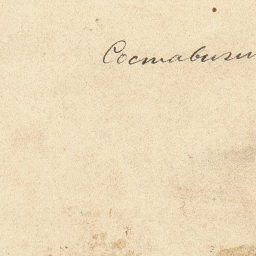 Составили